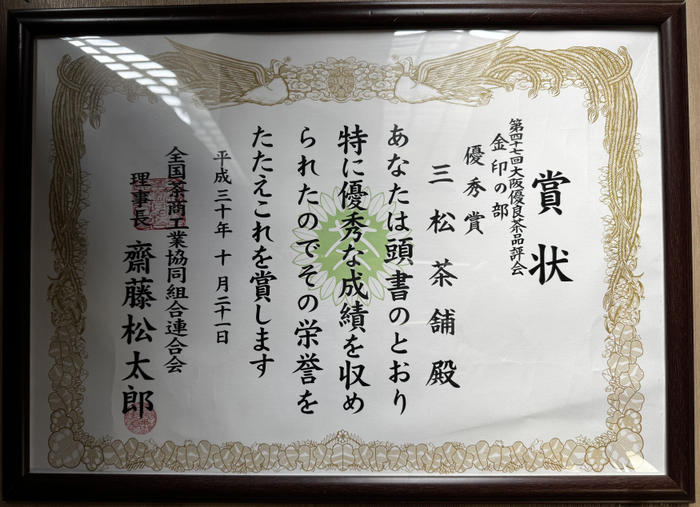 賞状
第四十七回大阪優良茶品評会
金印の部
優秀賞
三松茶舗殿
あなたは頭書のとおり
特に優秀な成績を収め
られたのでその栄誉を
たたえこれを賞します
平成三十年十月二十一日
全国茶商工業協同組合連合会
理事長 齋藤松太郎